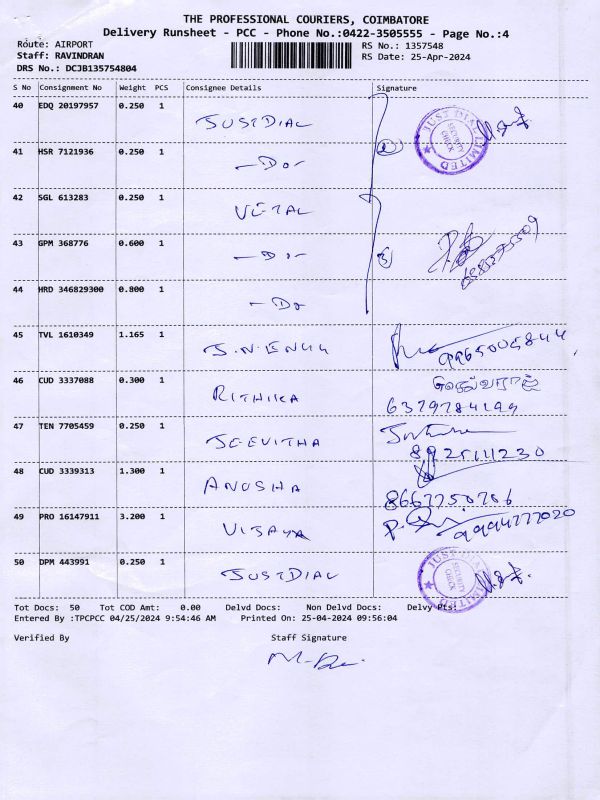 THE PROFESSIONAL COURIERS, COIMBATORE
Delivery Runsheet - PCC - Phone No.:0422-3505555 - Page No.:4
Route: AIRPORT
Staff: RAVINDRAN
DRS No.: DCJB135754804
RS No.: 1357548
RS Date: 25-Apr-2024
S No Consignment No Weight PCS Consignee Details Signature
40 EDQ 20197957 0.250 1 JUSTDIAL
JUST DIAL LIMITED SECURITY CHECK
41 HSR 7121936 0.250 1 —Do—
42 SGL 613283 0.250 1 VETAL
43 GPM 368776 0.600 1 —Do—
44 HRD 346829300 0.800 1 —Do
45 TVL 1610349 1.165 1 J.N.ENGG 9965005844
46 CUD 3337088 0.300 1 RITHIKA செல்வராஜ்
6379784199
47 TEN 7705459 0.250 1 JEEVITHA
8925111230
48 CUD 3339313 1.300 1 ANUSHA
8667750706
49 PRO 16147911 3.200 1 VIJAYA 9994277020
50 DPM 443991 0.250 1 JUSTDIAL
JUST DIAL LIMITED SECURITY CHECK
Tot Docs: 50 Tot COD Amt: 0.00 Delvd Docs: Non Delvd Docs: Delvy Pts:
Entered By :TPCPCC 04/25/2024 9:54:46 AM Printed On: 25-04-2024 09:56:04
Verified By Staff Signature